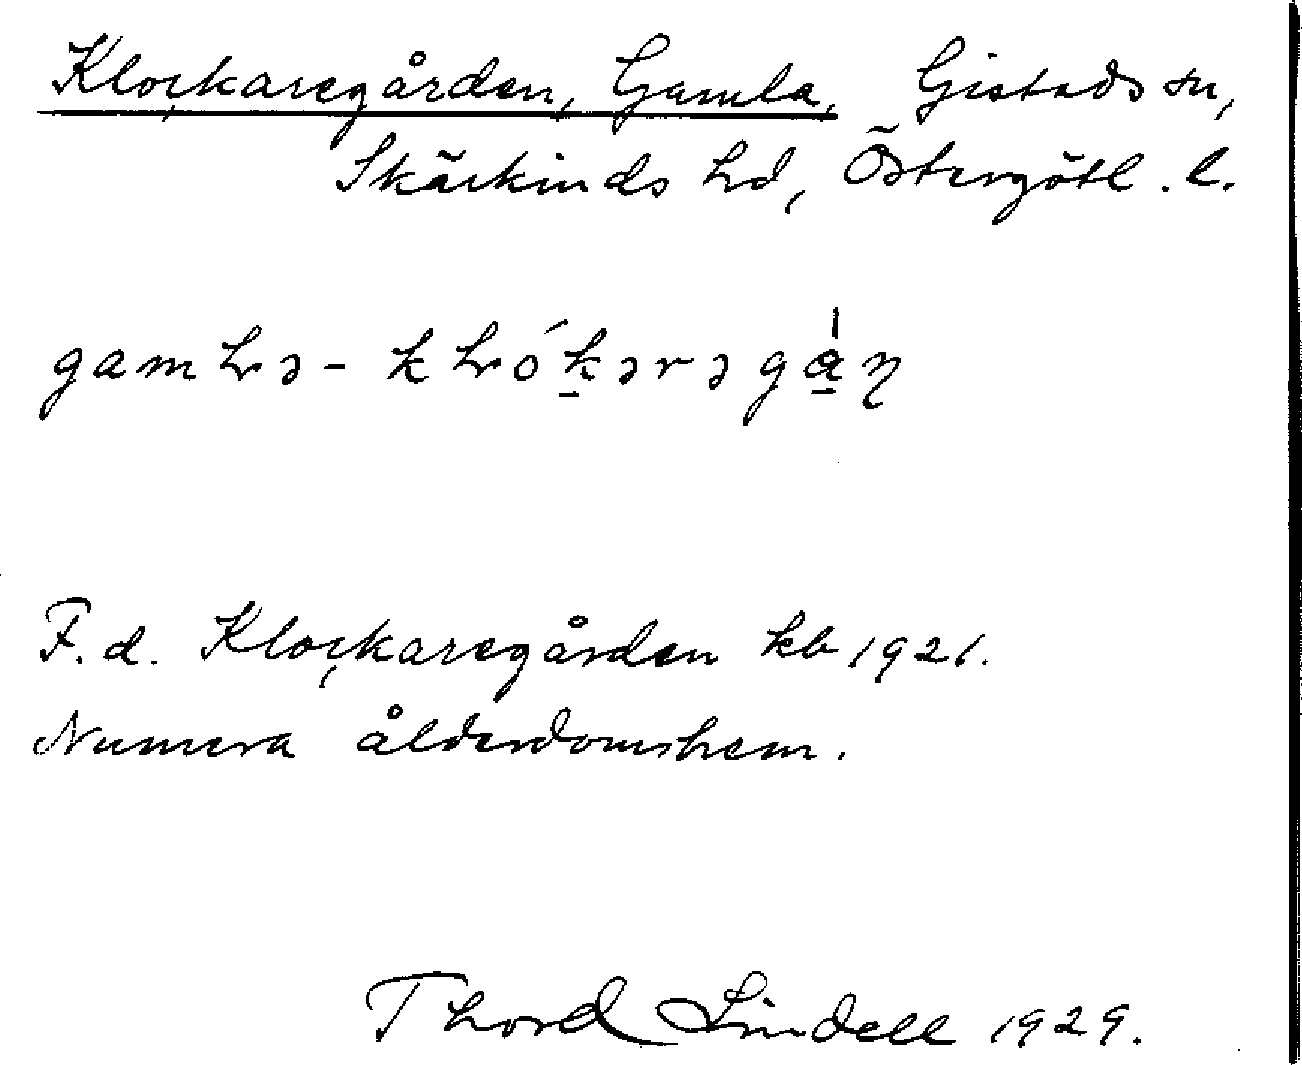 Klockaregården, Gamla, Gistads sn,
Skärkinds hd, Östergötl. l.
F.d. Klockaregården kb 1921.
Numera ålderdomshem.
Thord Lindell 1929.